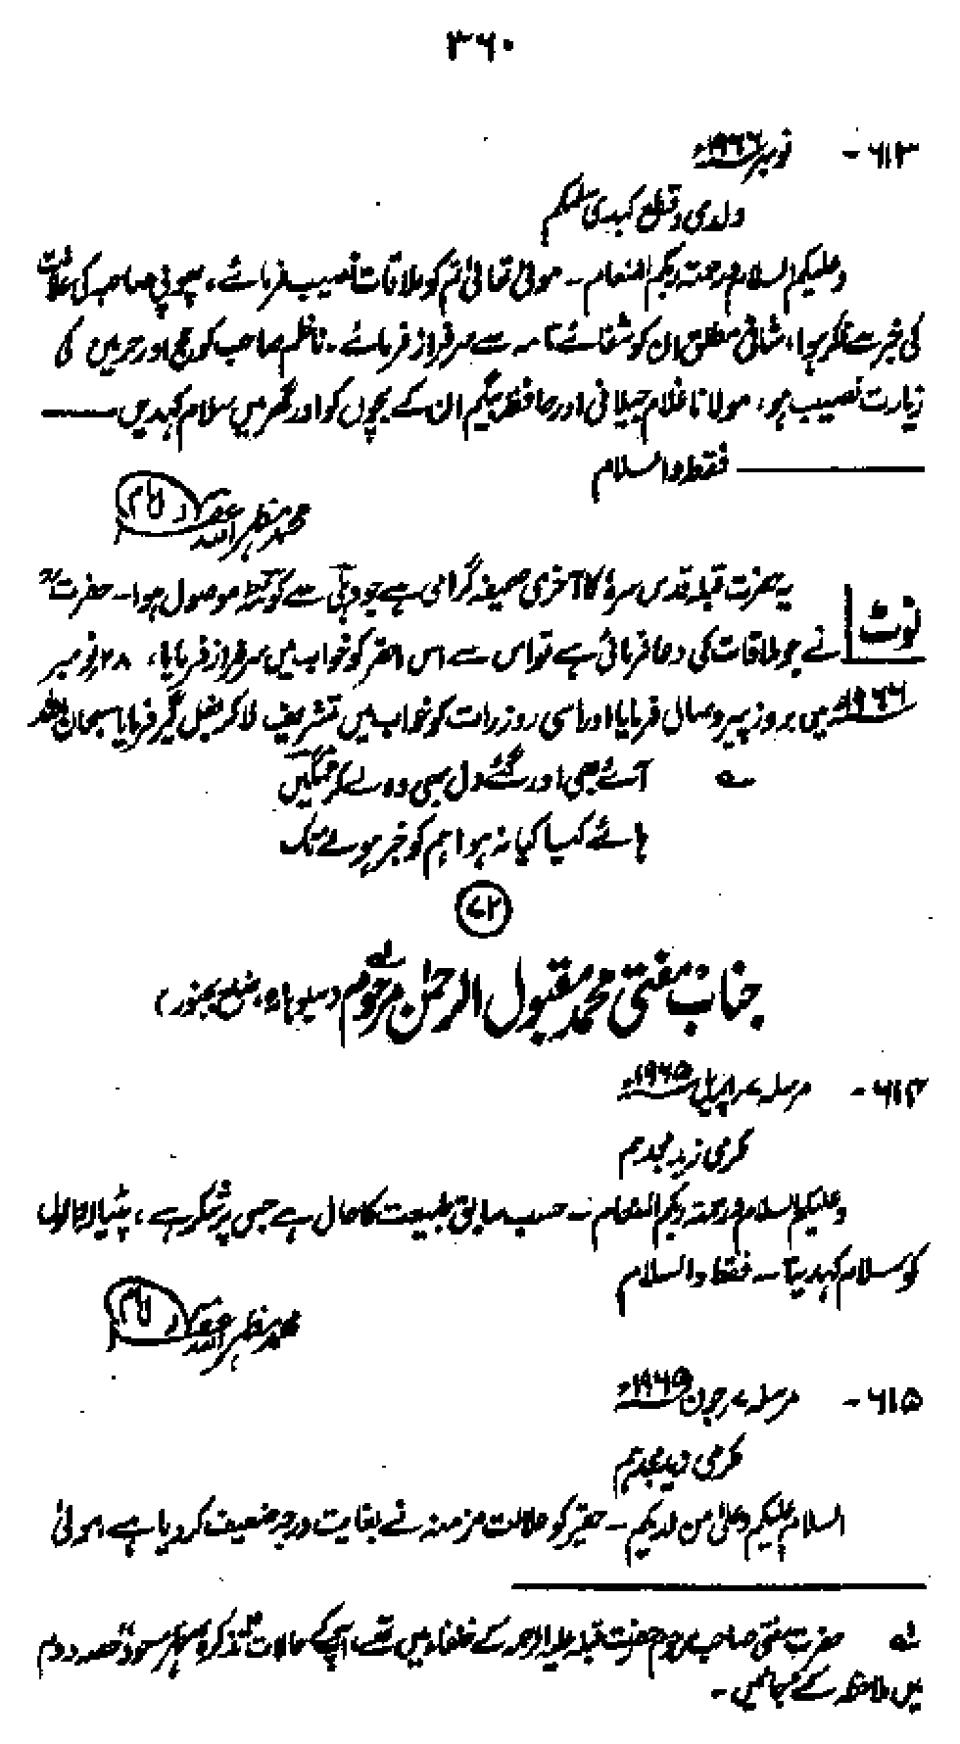 ۳۶۰
۶۱۳ - نومبر ۱۹۶۶ء
ولدی و قطع کبدی سلمکم
وعلیکم السلام ورحمتہ ربکم المنعام ۔ مولیٰ تعالیٰ تم کو ملاقات نصیب فرمائے، پھوپی صاحبہ کی علالت
کی خبر سے فکر ہوا، شافی مطلق ان کو شفائے تامہ سے سرفراز فرمائے۔ ناظم صاحب کو حج اور حرمین کی
زیارت نصیب ہو، مولانا غلام جیلانی اور حافظ بیگم ان کے بچوں کو اور گھر میں سلام کہدیں
فقط والسلام
محمد مظہر اللہ غفرلہ امام
یہ حضرت قبلہ قدس سرہٗ کا آخری صحیفہ گرامی ہے جو دہلی سے کوئٹہ موصول ہوا۔ حضرت
نوٹ نے جو ملاقات کی دعا فرمائی ہے تو اس سے اس احقر کو خواب میں سرفراز فرمایا، ۲۸؍نومبر
۱۹۶۶ء میں بروز پیر وصال فرمایا اور اسی روز رات کو خواب میں تشریف لا کر بغل گیر فرمایا سبحان اللہ
آئے بھی اور گئے دل بھی وہ لے کر
ہائے کیا کیا نہ ہوا ہم کو خبر ہونے تک
۷۲
جناب مفتی محمد مقبول الرحمٰن مرحوم (سیوہارہ، ضلع بجنور)
۶۱۴ - مرسلہ ۷؍اپریل ۱۹۶۵ء
مکرمی زید مجدہم
وعلیکم السلام ورحمتہ ربکم المنعام ۔ حسب سابق طبیعت کا حال ہے جس پر شکر ہے، پٹیالہ والوں
کو سلام کہدینا ۔ فقط والسلام
محمد مظہر اللہ غفرلہ امام
۶۱۵ - مرسلہ ۷؍جون ۱۹۶۵ء
مکرمی زید مجدہم
السلام علیکم وعلیٰ من لدیکم ۔ حقیر کو علالت مزمنہ نے بغایت درجہ ضعیف کر دیا ہے، مولیٰ
لہ حضرت مفتی صاحب مرحوم حضرت قبلہ علیہ الرحمہ کے خلفاء میں تھے، آپ کے حالات "تذکرہ مظہر مسعود" حصہ دوم
میں ملاحظہ کئے جائیں ۔